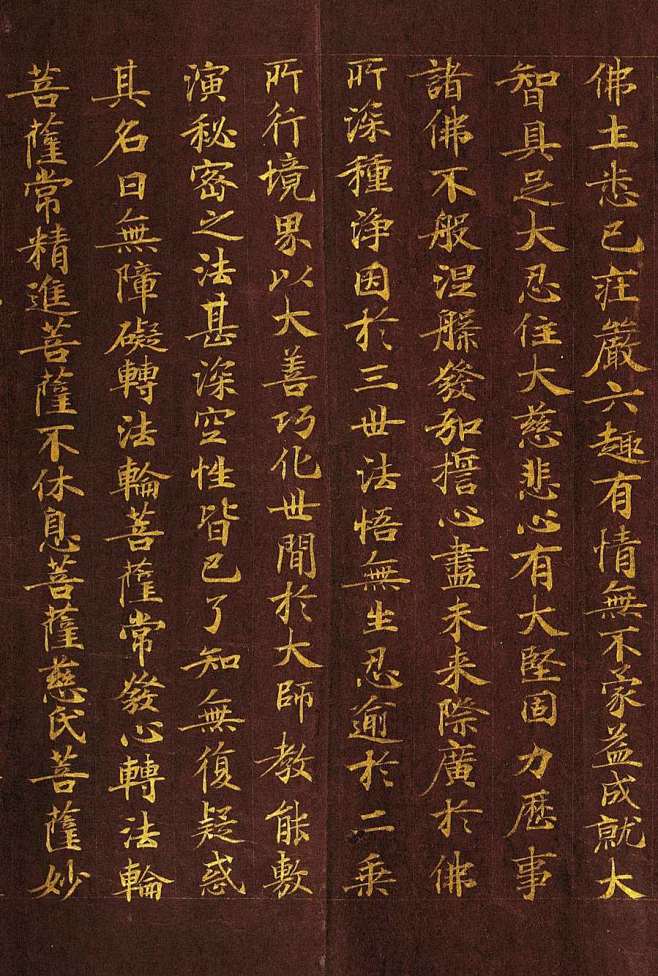 佛土悉已庄嚴六趣有情無不蒙益成就大
智具足大忍住大慈悲心有大堅固力歷事
諸佛不般涅槃發弘擔心盡未来際廣於佛
所深種淨因於三世法悟無生忍逾於二乗
所行境界以大善巧化世間於大師教能敷
演秘密之法甚深空性皆已了知無復疑惑
其名曰無障礙轉法輪菩薩常發心轉法輪
菩薩常精進菩薩不休息菩薩慈氏菩薩妙